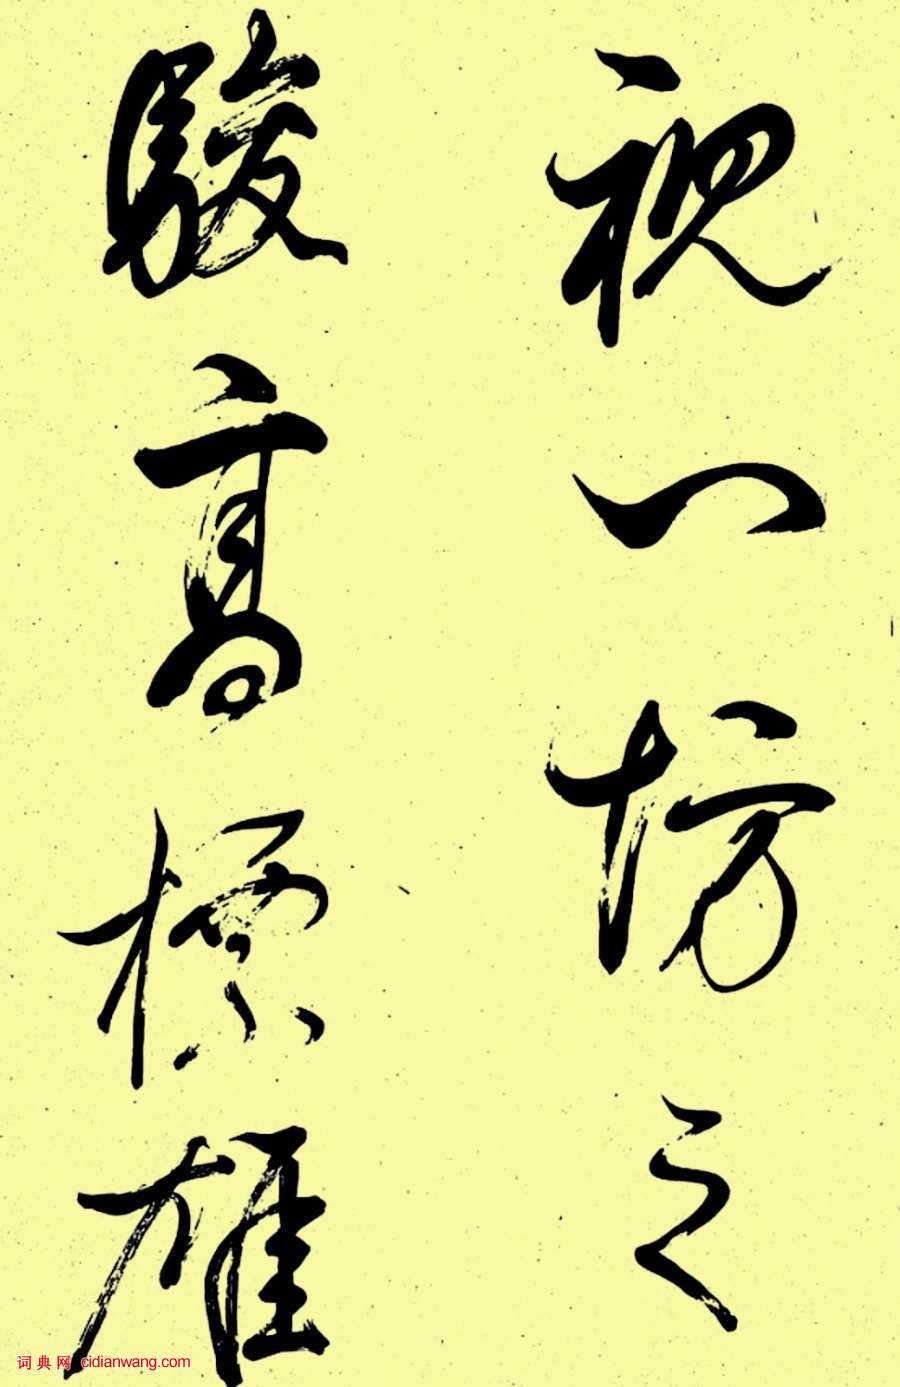 視一坊之
駿高標雄
词典网 cidianwang.com